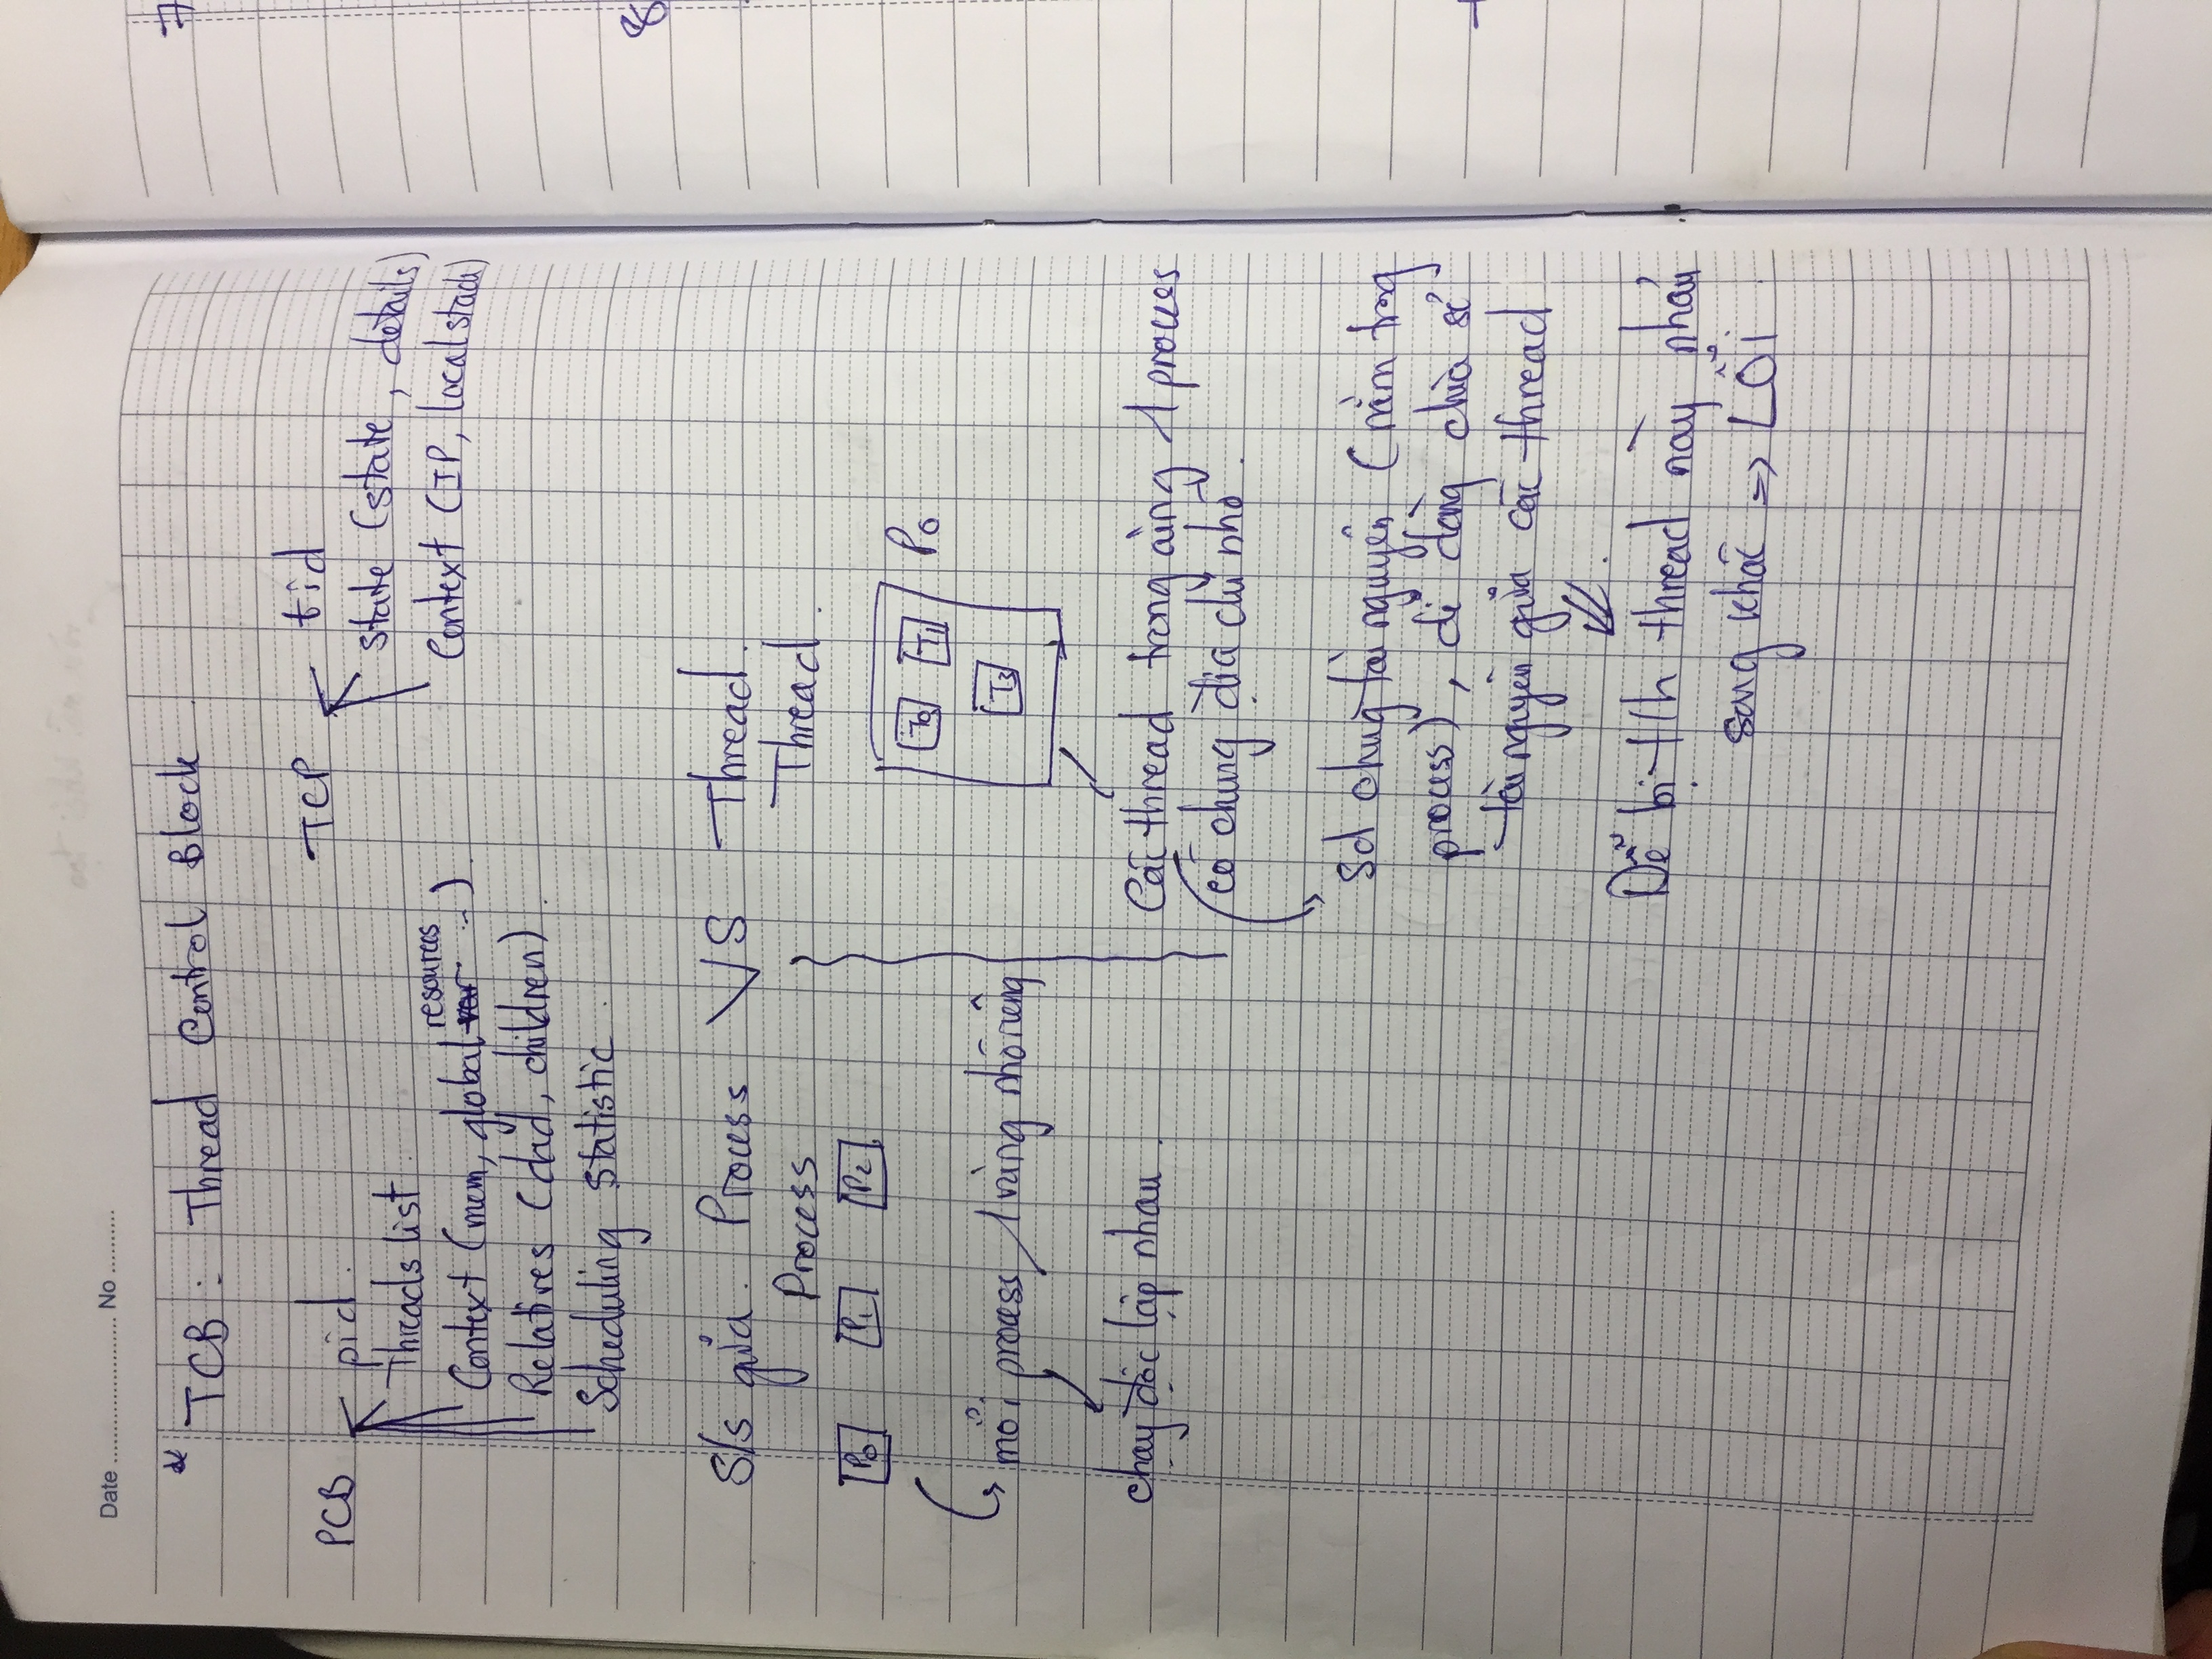 Date ........................ No ..........
* TCB : Thread Control Block
PCB
pid.
Threads list
Context (mem, global var resources ...)
Relatives (dad, children)
Scheduling statistic
TCP
tid
state (state, details)
Context (IP, local stack)
S/s giữa. Process VS Thread.
Process
Thread.
P0 P1 P2
T0 T1 P0
T3
mỗi process 1 vùng nhớ riêng
chạy độc lập nhau.
Các thread trong cùng 1 process
có chung địa chỉ nhớ.
sd chung tài nguyên (nằm trong
process), dễ dàng chia sẻ
tài nguyên giữa các thread
Dễ bị t/h thread này nhảy
sang khác => LỖI
8